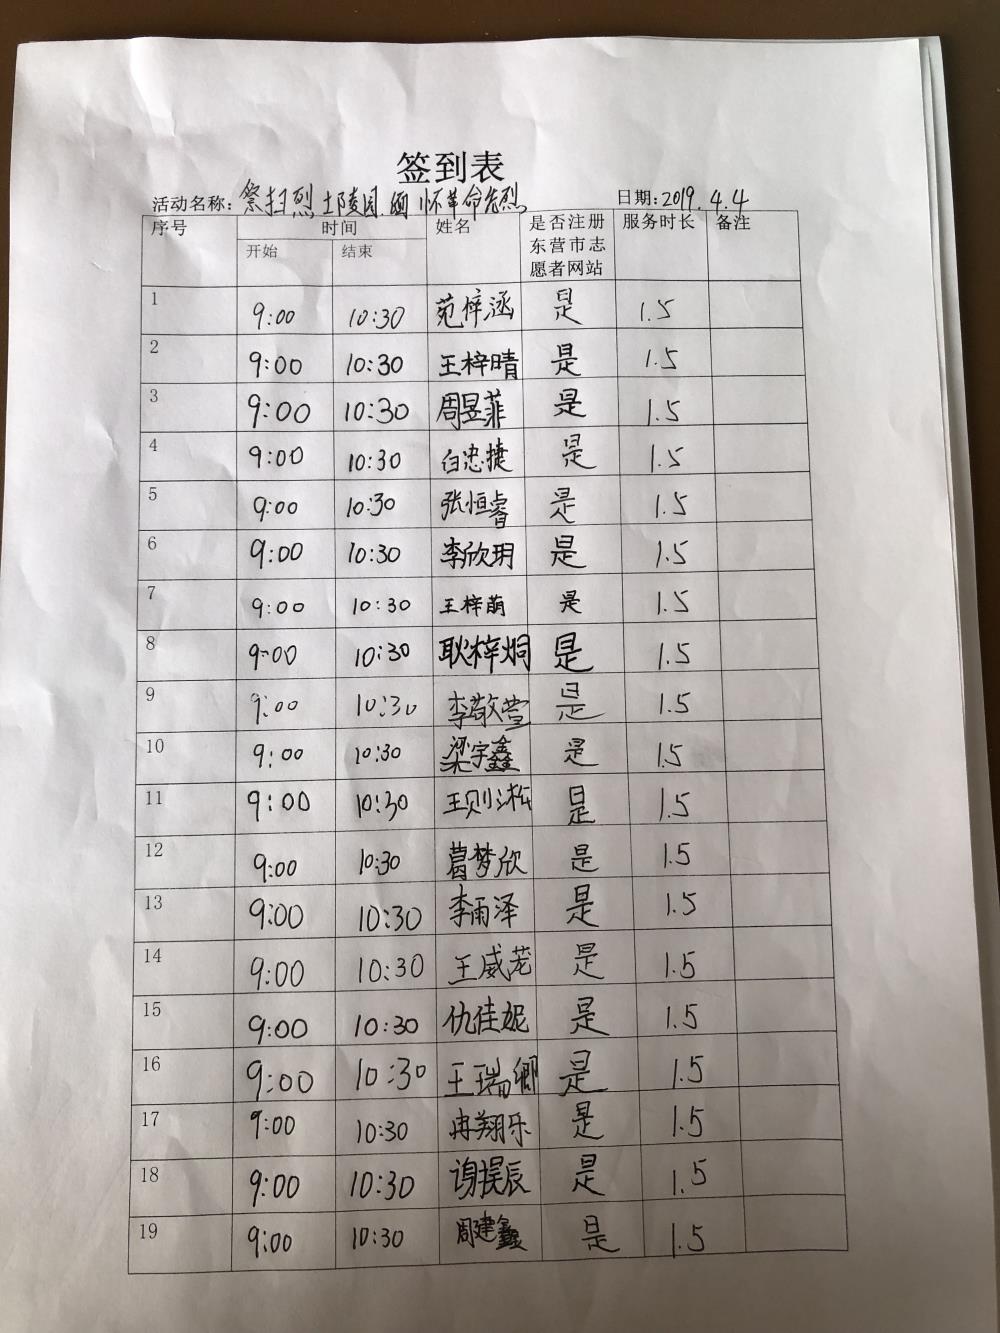 签到表
活动名称: 祭扫烈士陵园.缅怀革命先烈 日期:2019.4.4
序号 时间 姓名 是否注册东营市志愿者网站 服务时长 备注
开始 结束
1 9:00 10:30 苑梓涵 是 1.5
2 9:00 10:30 王梓晴 是 1.5
3 9:00 10:30 周昱菲 是 1.5
4 9:00 10:30 白忠捷 是 1.5
5 9:00 10:30 张恒睿 是 1.5
6 9:00 10:30 李欣玥 是 1.5
7 9:00 10:30 王梓萌 是 1.5
8 9:00 10:30 耿梓炯 是 1.5
9 9:00 10:30 李敬萱 是 1.5
10 9:00 10:30 梁宇鑫 是 1.5
11 9:00 10:30 王则淞 是 1.5
12 9:00 10:30 葛梦欣 是 1.5
13 9:00 10:30 李雨泽 是 1.5
14 9:00 10:30 王威 是 1.5
15 9:00 10:30 仇佳妮 是 1.5
16 9:00 10:30 王瑞卿 是 1.5
17 9:00 10:30 冉翔乐 是 1.5
18 9:00 10:30 谢 辰 是 1.5
19 9:00 10:30 周建鑫 是 1.5